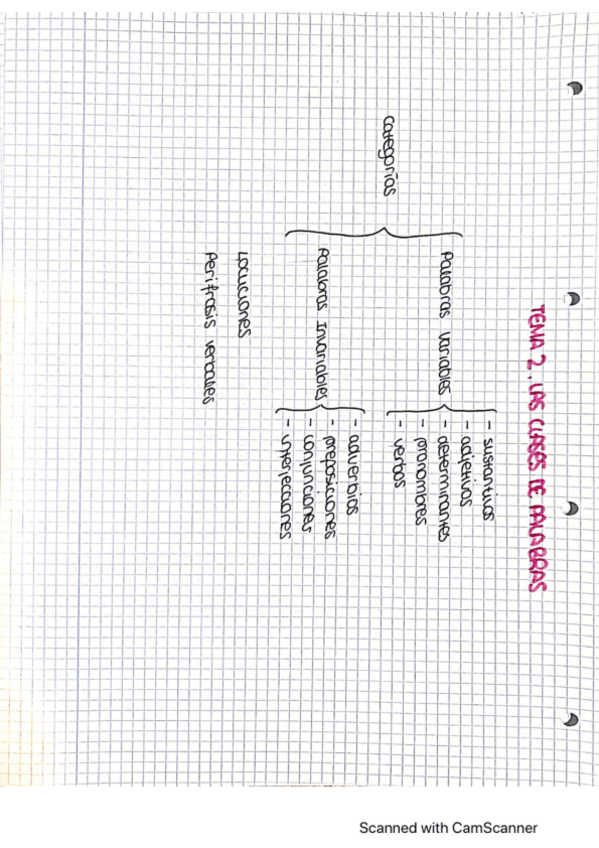 TEMA 2. LAS CLASES DE PALABRAS
Categorías
Palabras variables
- sustantivos
- adjetivos
- determinantes
- pronombres
- verbos
Palabras Invariables
- adverbios
- preposiciones
- conjunciones
- interjecciones
Locuciones
Perífrasis verbales
Scanned with CamScanner